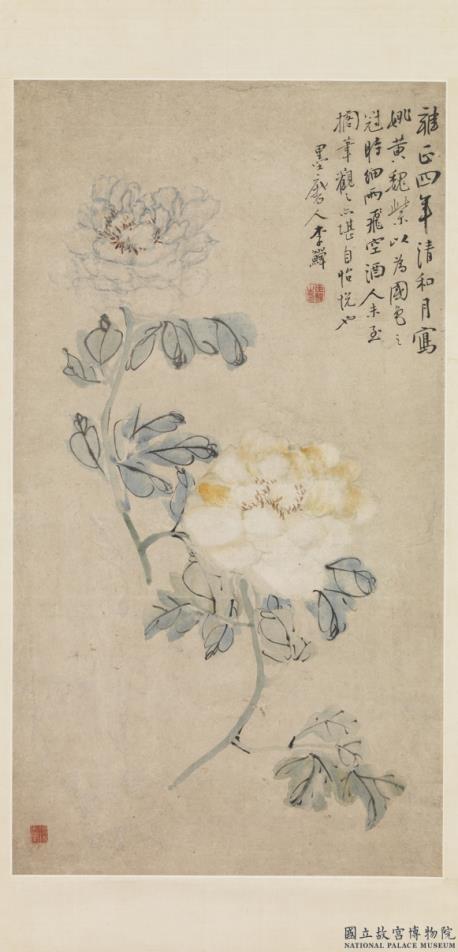 雍正四年清和月寫
姚黃魏紫以為國色之
冠時細雨飛空酒人未至
擱筆觀之亦堪自怡悅也
墨磨人李鱓
國立故宮博物院
NATIONAL PALACE MUSEUM